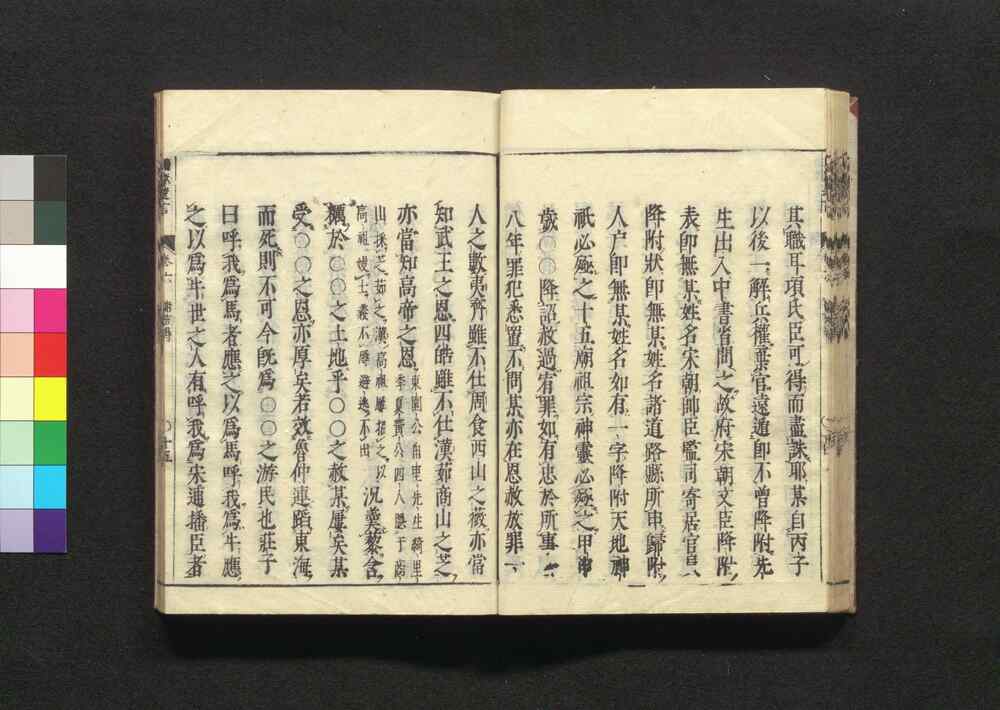 其職耳項氏臣可得而盡誅耶某自丙子
以後一解兵權棄官遠遁即不曾降附先
生出入中書省問之故府宋朝文臣降附
表即無某姓名宋朝帥臣監司寄居官員
降附狀即無某姓名諸道路縣所申歸附
人户即無某姓名如有一字降附天地神
祇必殛之十五廟祖宗神靈必殛之甲申
歲〇〇降詔赦過宥罪如有忠於所事
八年罪犯悉置不問某亦在恩赦放罪一
人之數夷齊雖不仕周食西山之薇亦當
知武王之恩四皓雖不仕漢茹商山之芝
亦當知高帝之恩東園公甪里先生綺里
季夏黄公四人隱于商
山採芝茹之漢高祖屢招之以
高祖嫚士義不辱避逃不出
況羹藜含
糲於〇〇之土地乎〇〇之赦某屢矣某
受〇〇之恩亦厚矣若效魯仲連蹈東海
而死則不可今旣爲〇〇之游民也莊子
曰呼我爲馬者應之以爲馬呼我爲牛應
之以爲牛世之人有呼我爲宋逋播臣者
十五